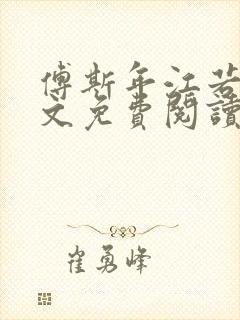 傅斯年江若
文免費閱讀
崔勇峰